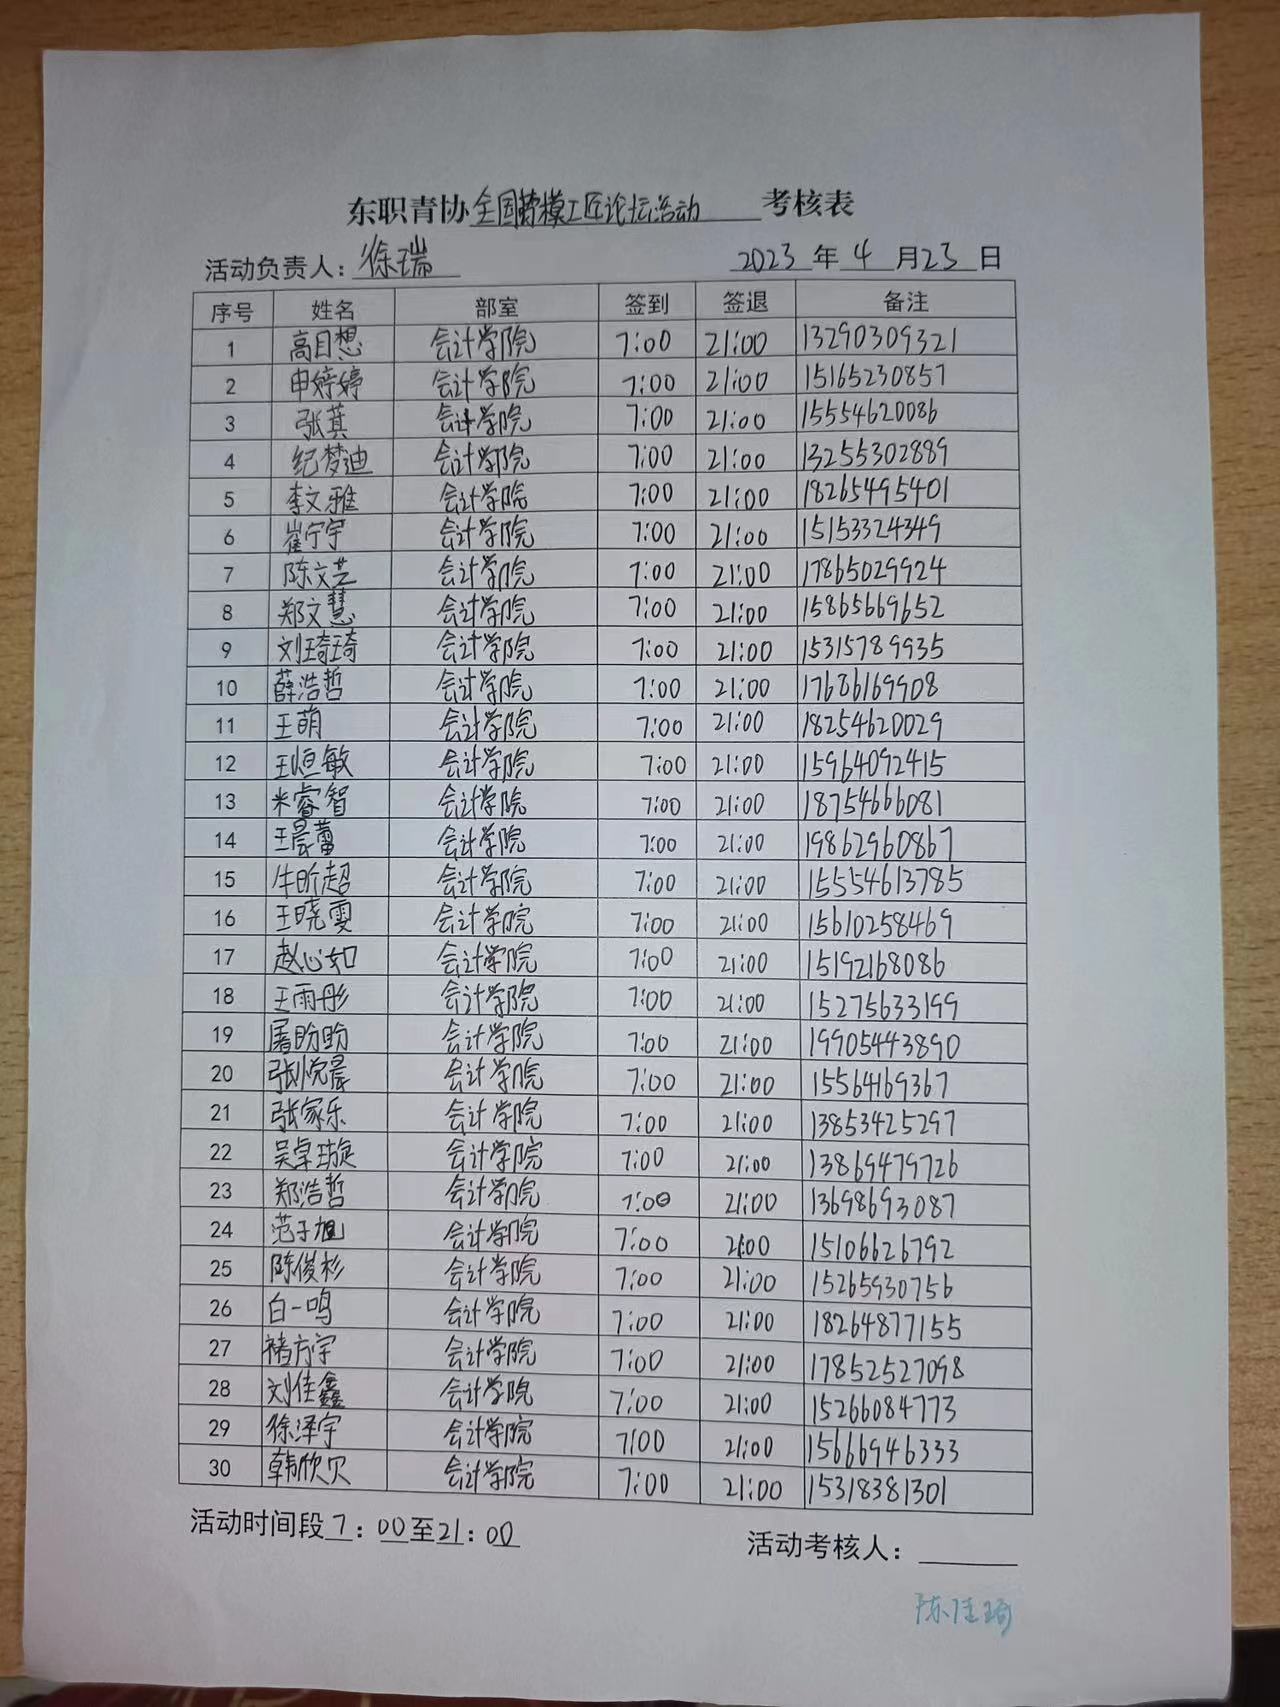 东职青协全国劳模工匠论坛活动 考核表
活动负责人：徐瑞 2023年4月23日
序号 姓名 部室 签到 签退 备注
1 高目想 会计学院 7:00 21:00 13290309321
2 申婷婷 会计学院 7:00 21:00 15165230857
3 张萁 会计学院 7:00 21:00 15554620086
4 纪梦迪 会计学院 7:00 21:00 13255302889
5 李文雅 会计学院 7:00 21:00 18265495401
6 崔宁宇 会计学院 7:00 21:00 15153324349
7 陈文艺 会计学院 7:00 21:00 17865029924
8 郑文慧 会计学院 7:00 21:00 15865669652
9 刘琦琦 会计学院 7:00 21:00 15315789935
10 薛浩哲 会计学院 7:00 21:00 17686169908
11 王萌 会计学院 7:00 21:00 18254620029
12 王恒敏 会计学院 7:00 21:00 15964092415
13 米睿智 会计学院 7:00 21:00 18754666081
14 王晨蕾 会计学院 7:00 21:00 19862960867
15 牛昕超 会计学院 7:00 21:00 15554613785
16 王晓雯 会计学院 7:00 21:00 15610258469
17 赵心如 会计学院 7:00 21:00 15192168086
18 王雨彤 会计学院 7:00 21:00 15275633199
19 屠盼盼 会计学院 7:00 21:00 19905443890
20 张悦晨 会计学院 7:00 21:00 15564169367
21 张家乐 会计学院 7:00 21:00 13853425297
22 吴卓璇 会计学院 7:00 21:00 13869479726
23 郑浩哲 会计学院 7:00 21:00 13698693087
24 范子旭 会计学院 7:00 21:00 15106626792
25 陈俊杉 会计学院 7:00 21:00 15265930756
26 白一鸣 会计学院 7:00 21:00 18264877155
27 褚方宇 会计学院 7:00 21:00 17852527098
28 刘佳鑫 会计学院 7:00 21:00 15266084773
29 徐泽宇 会计学院 7:00 21:00 15666946333
30 韩欣贝 会计学院 7:00 21:00 15318381301
活动时间段7：00至21：00 活动考核人：
陈佳琦